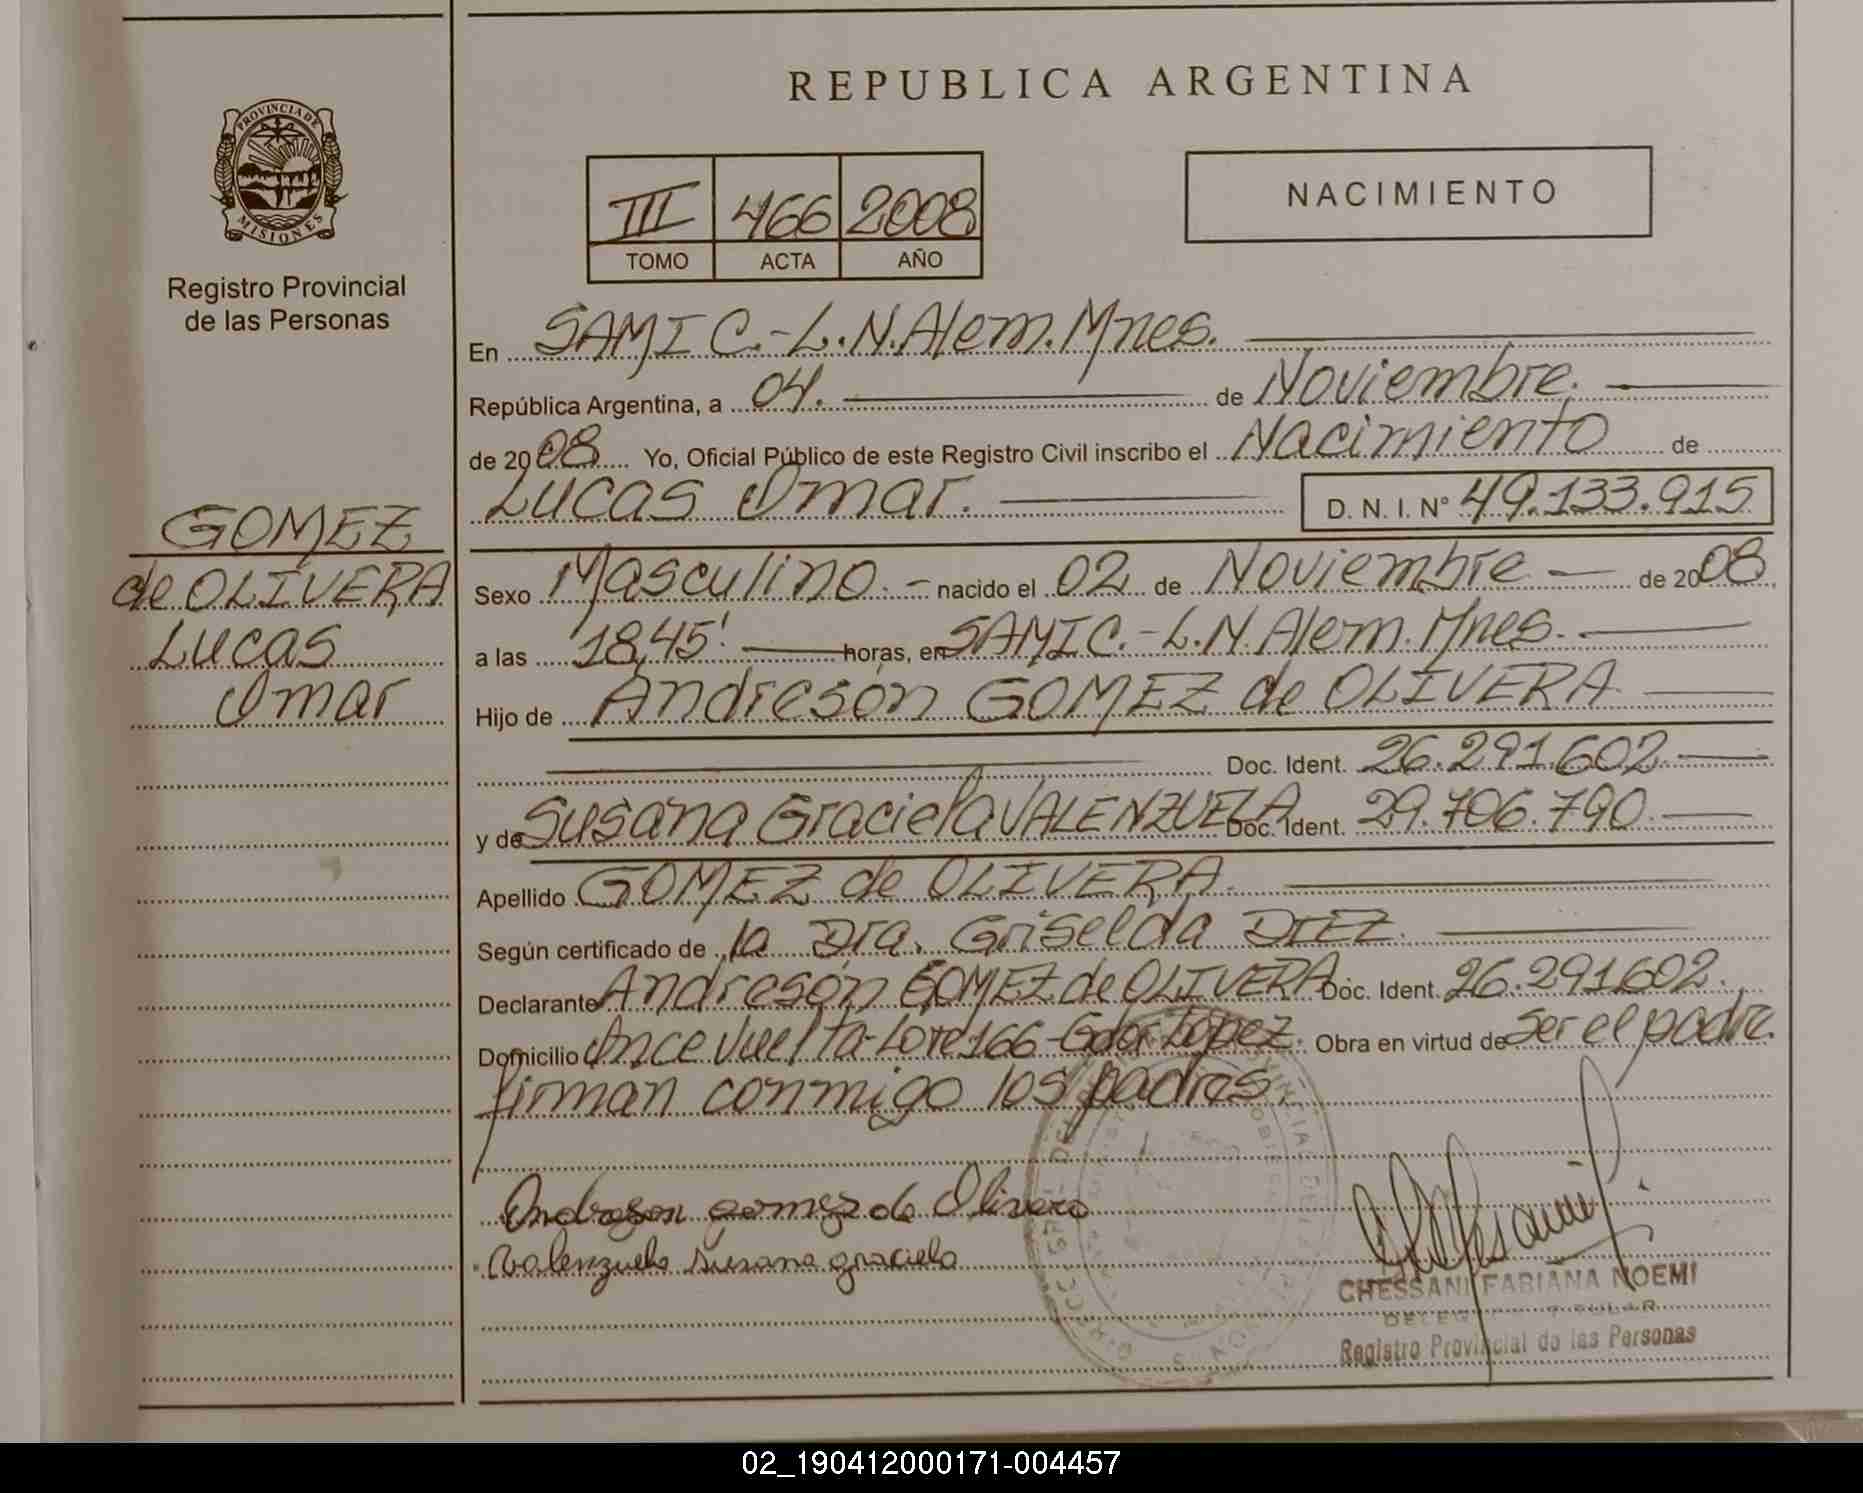 REPUBLICA ARGENTINA
PROVINCIA DE
MISIONES
Registro Provincial
de las Personas
III 466 2008
TOMO ACTA AÑO
NACIMIENTO
En SAMIC.-L.N.Alem.Mnes.
República Argentina, a 04. de Noviembre.
de 2008 Yo, Oficial Público de este Registro Civil inscribo el Nacimiento de
Lucas Omar. D. N. I. N° 49.133.915
GOMEZ
de OLIVERA
Lucas
Omar
Sexo Masculino.- nacido el 02 de Noviembre de 2008
a las 18,45' horas, en SAMIC.-L.N.Alem.Mnes.
Hijo de Andresón GOMEZ de OLIVERA
Doc. Ident. 26.291.602
y de Susana Graciela VALENZUELA Doc. Ident. 29.706.790
Apellido GOMEZ de OLIVERA.
Según certificado de la Dra. Griselda DIEZ.
Declarante Andresón GOMEZ de OLIVERA Doc. Ident. 26.291.602.
Domicilio Once Vuelta-Lote 166-Gdor Lopez. Obra en virtud de ser el padre.
firman conmigo los padres.
Andreson gomez de Olivera
Valenzuela susana graciela
CHESSANI FABIANA NOEMI
Registro Provincial de las Personas
02_190412000171-004457